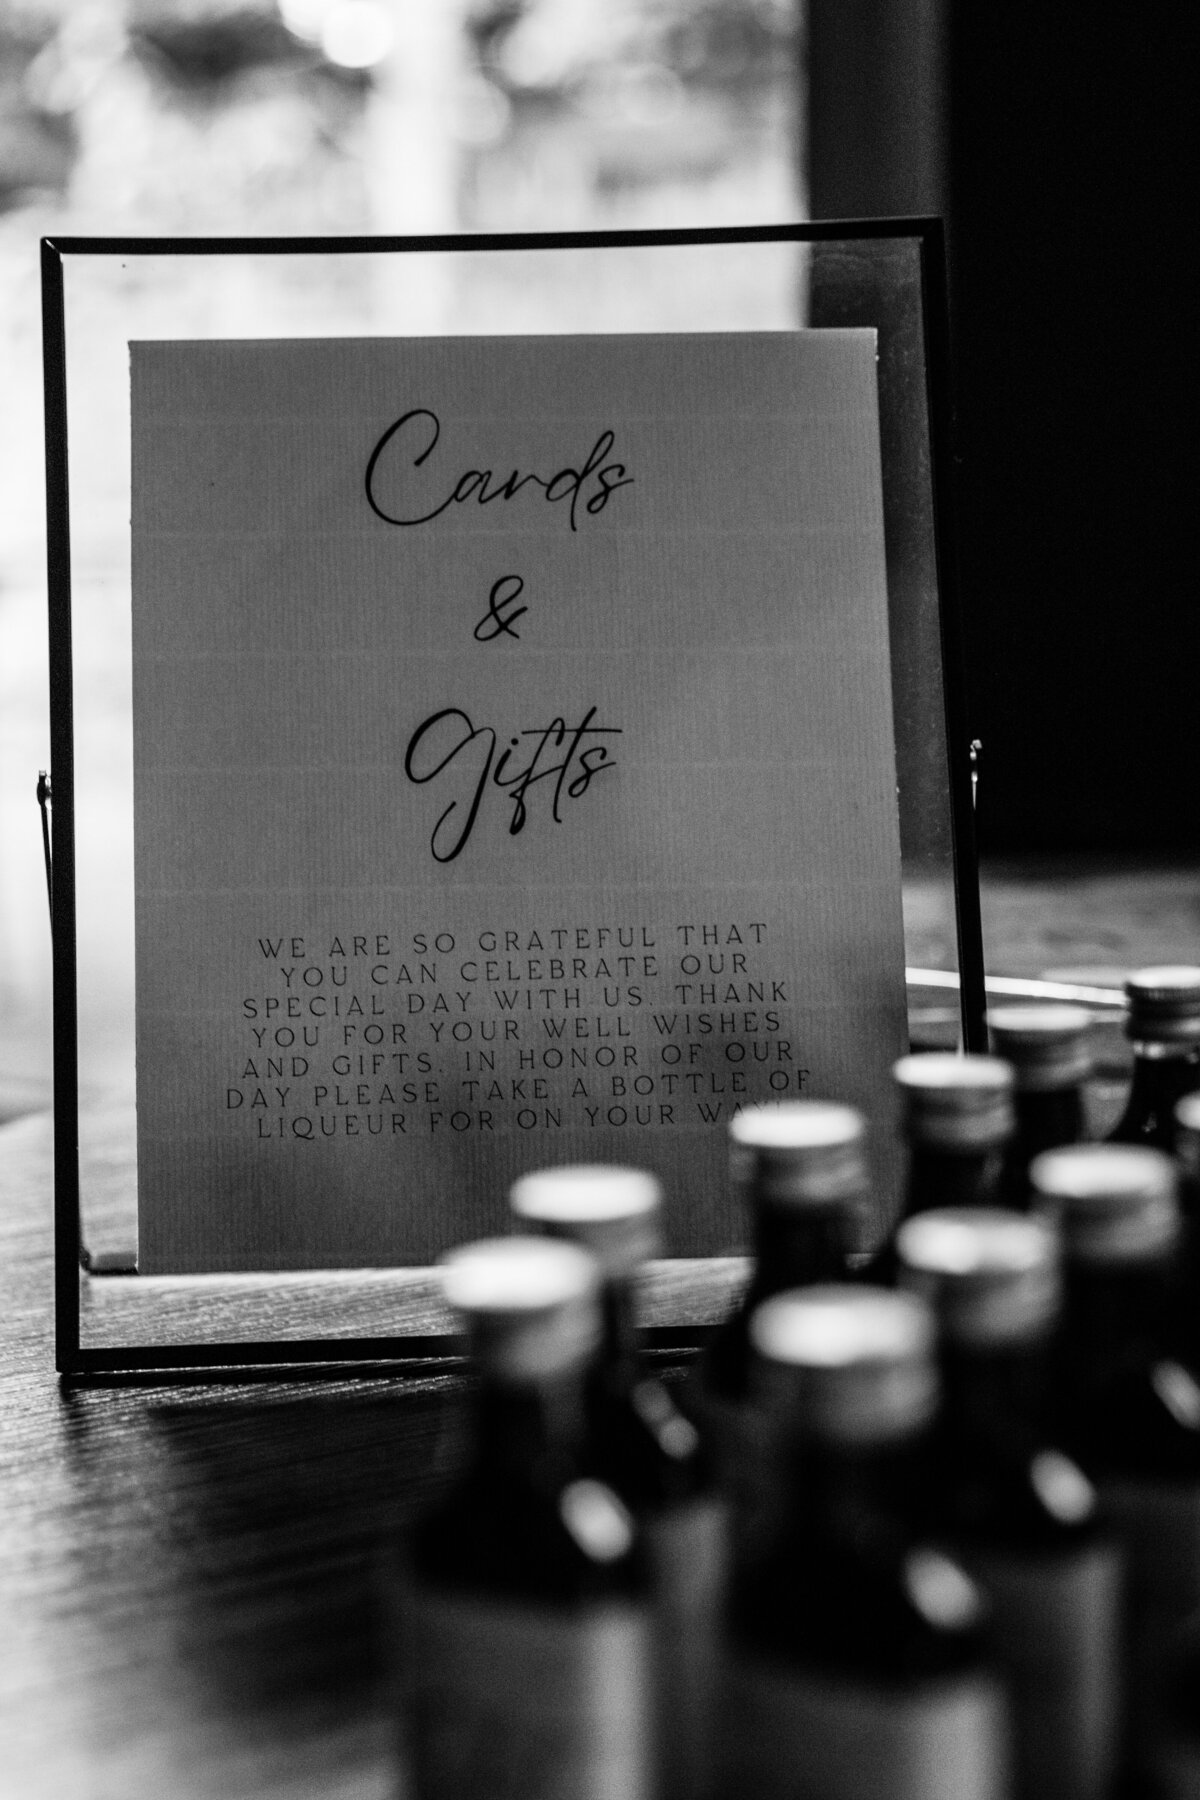 Cards
&
Gifts
WE ARE SO GRATEFUL THAT
YOU CAN CELEBRATE OUR
SPECIAL DAY WITH US. THANK
YOU FOR YOUR WELL WISHES
AND GIFTS. IN HONOR OF OUR
DAY PLEASE TAKE A BOTTLE OF
LIQUEUR FOR ON YOUR WAY!